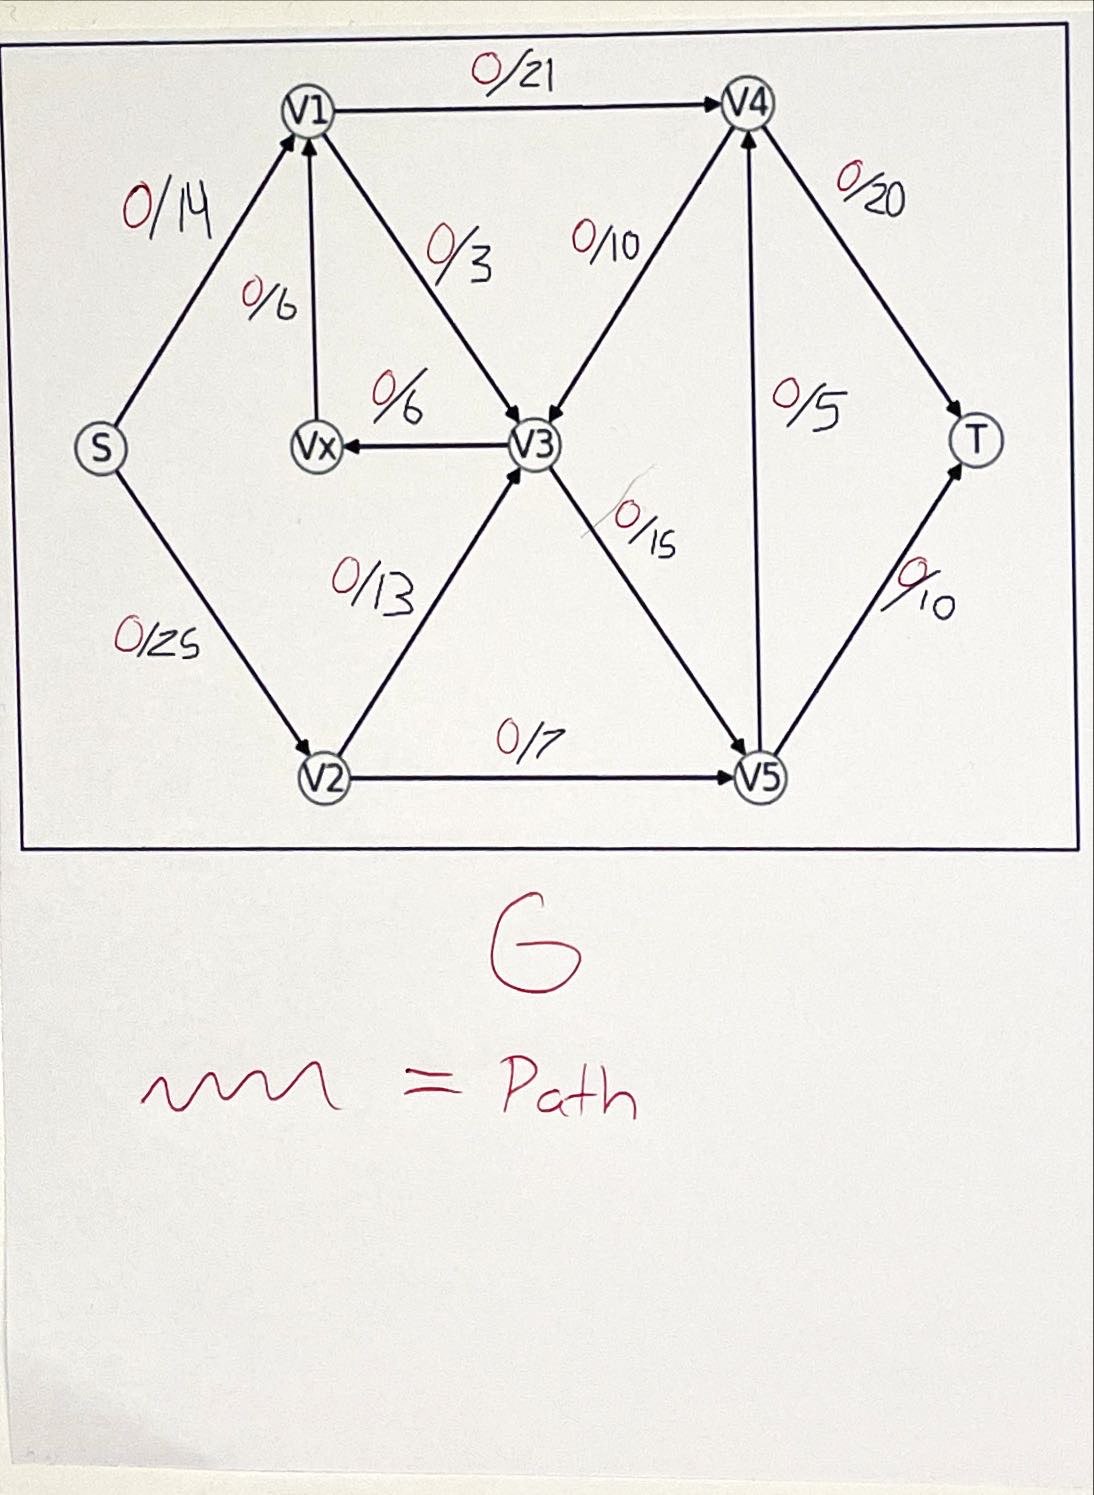 0/21
V1
V4
0/14
0/3
0/10
0/20
0/6
0/6
0/5
S
Vx
V3
T
0/15
0/13
0/10
0/25
0/7
V2
V5
G
= Path